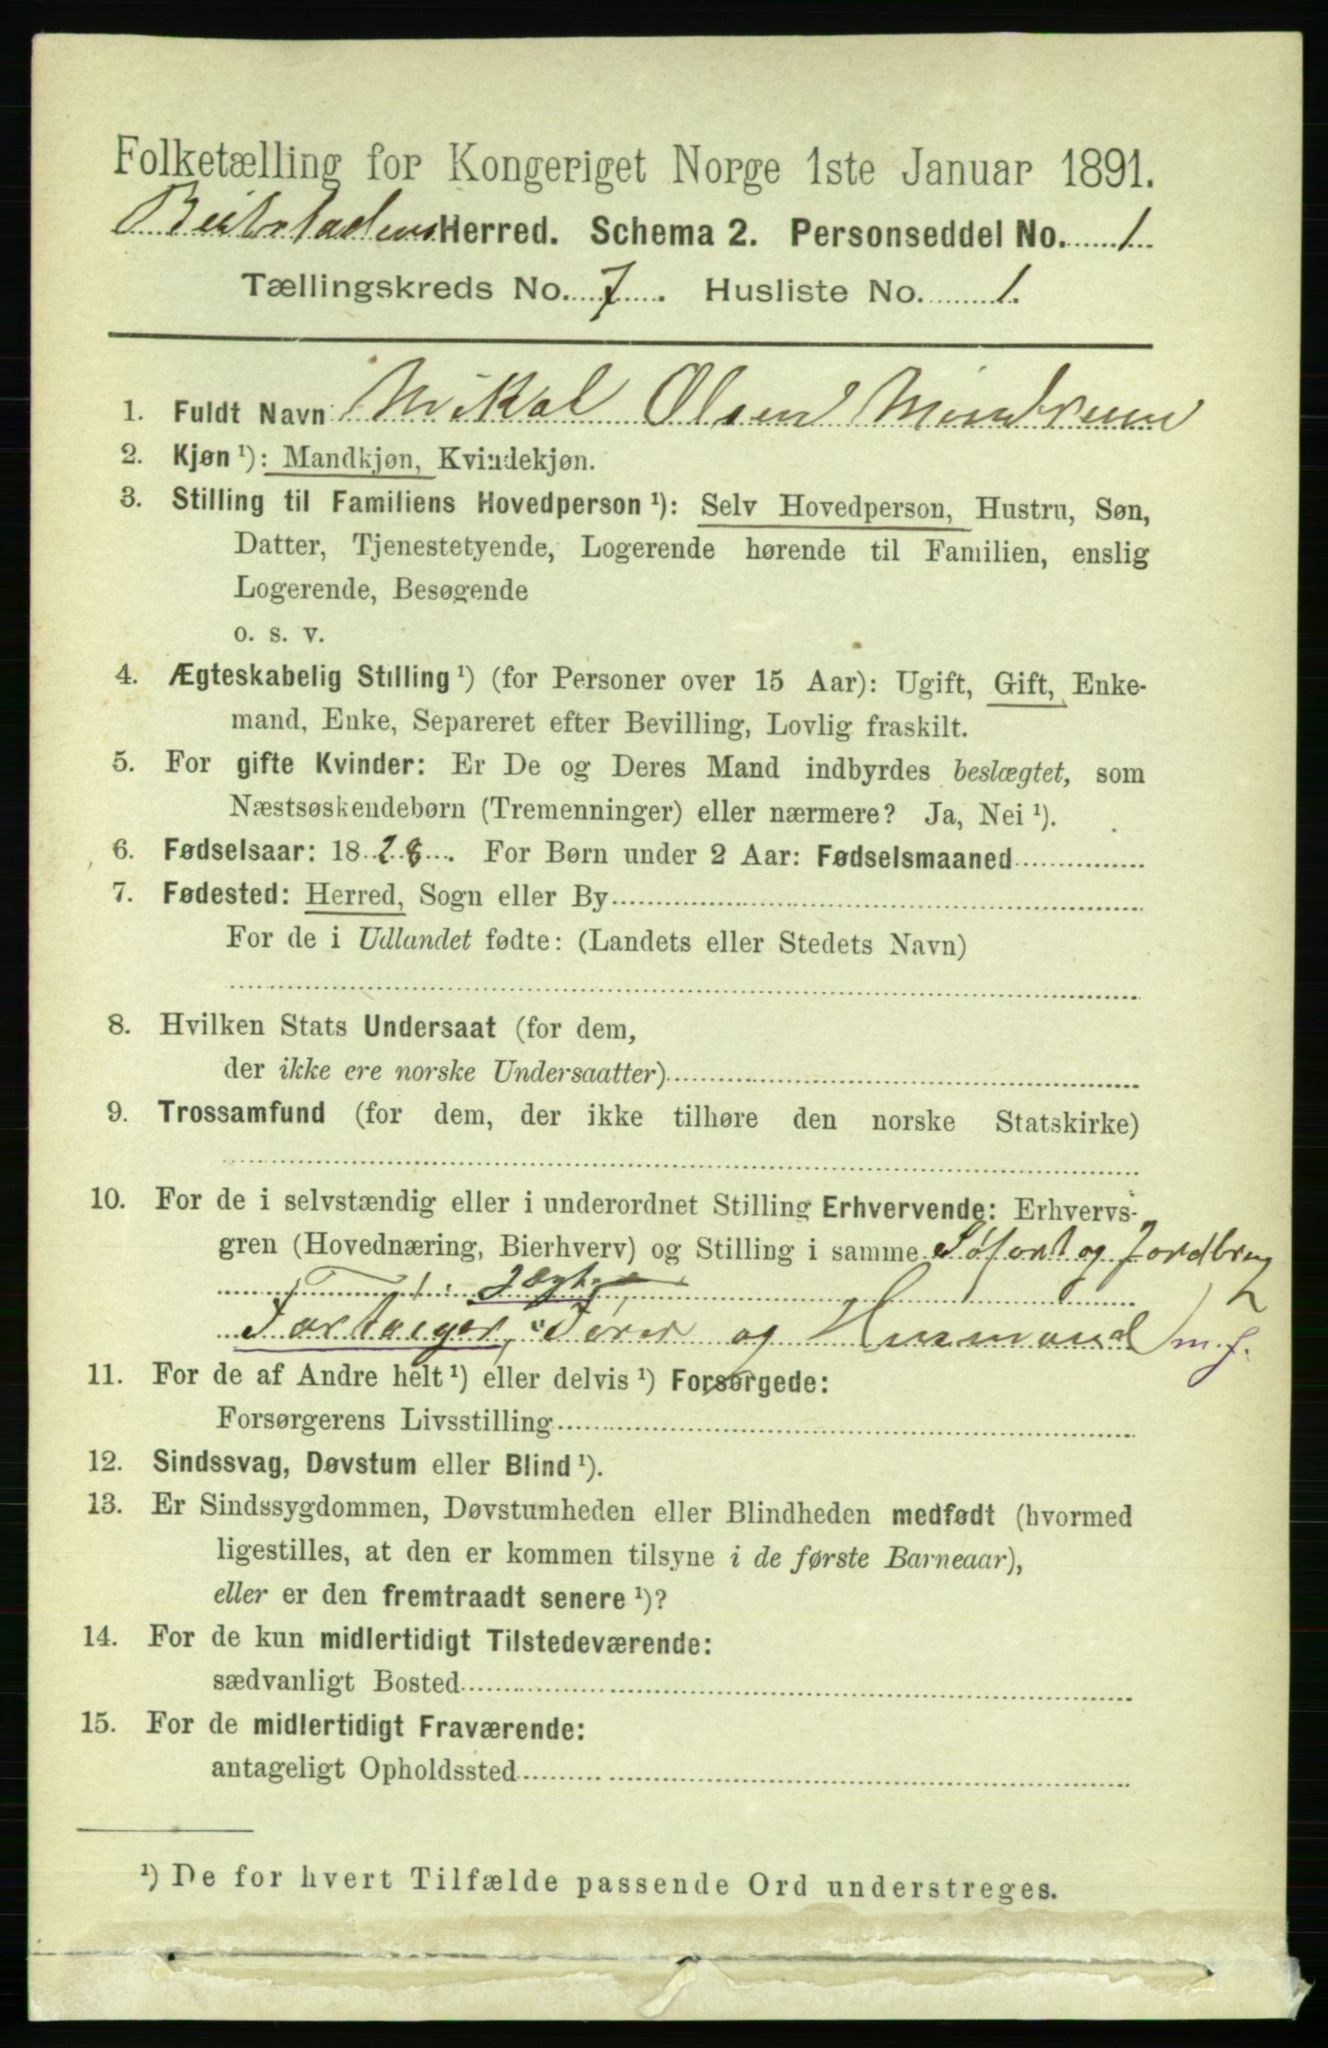 Folketælling for Kongeriget Norge 1ste Januar 1891.
Beitstadens Herred. Schema 2. Personseddel No. 1
Tællingskreds No. 7. Husliste No. 1.
1. Fuldt Navn Mikal Olsen
2. Kjøn ¹): Mandkjøn, Kvindekjøn.
3. Stilling til Familiens Hovedperson ¹): Selv Hovedperson, Hustru, Søn,
Datter, Tjenestetyende, Logerende hørende til Familien, enslig
Logerende, Besøgende
o. s. v.
4. Ægteskabelig Stilling ¹) (for Personer over 15 Aar): Ugift, Gift, Enke-
mand, Enke, Separeret efter Bevilling, Lovlig fraskilt.
5. For gifte Kvinder: Er De og Deres Mand indbyrdes beslægtet, som
Næstsøskendebørn (Tremenninger) eller nærmere? Ja, Nei ¹).
6. Fødselsaar: 1828. For Børn under 2 Aar: Fødselsmaaned
7. Fødested: Herred, Sogn eller By
For de i Udlandet fødte: (Landets eller Stedets Navn)
8. Hvilken Stats Undersaat (for dem,
der ikke ere norske Undersaatter)
9. Trossamfund (for dem, der ikke tilhøre den norske Statskirke)
10. For de i selvstændig eller i underordnet Stilling Erhvervende: Erhvervs-
gren (Hovednæring, Bierhverv) og Stilling i samme Søfart og Jordbrug
Jægt
Fartøiger, Fører og Husmand m. j.
11. For de af Andre helt ¹) eller delvis ¹) Forsørgede:
Forsørgerens Livsstilling
12. Sindssvag, Døvstum eller Blind ¹).
13. Er Sindssygdommen, Døvstumheden eller Blindheden medfødt (hvormed
ligestilles, at den er kommen tilsyne i de første Barneaar),
eller er den fremtraadt senere ¹)?
14. For de kun midlertidigt Tilstedeværende:
sædvanligt Bosted
15. For de midlertidigt Fraværende:
antageligt Opholdssted
¹) De for hvert Tilfælde passende Ord understreges.